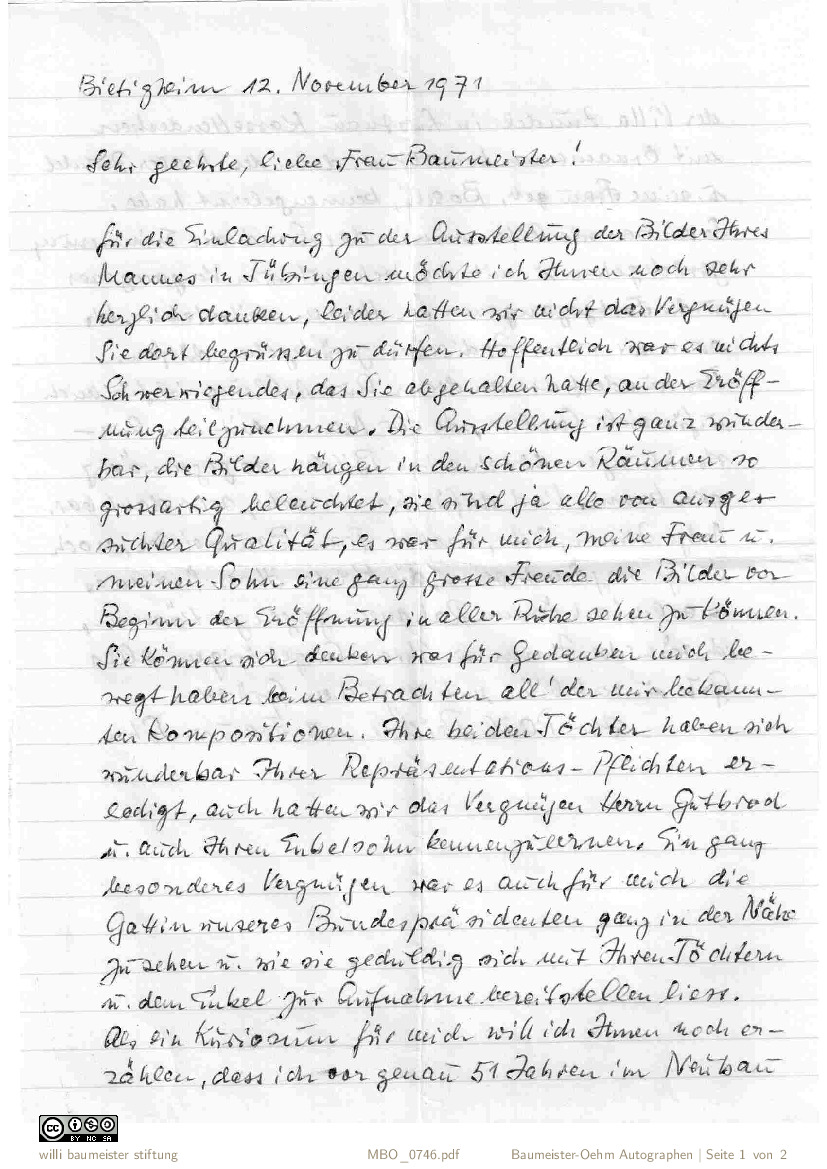 Bietigheim 12. November 1971
Sehr geehrte, liebe Frau Baumeister!
für die Einladung zu der Ausstellung der Bilder Ihres
Mannes in Tübingen möchte ich Ihnen noch sehr
herzlich danken, leider hatten wir nicht das Vergnügen
Sie dort begrüssen zu dürfen. Hoffentlich war es nichts
Schwerwiegendes, das Sie abgehalten hatte, an der Eröff-
nung teilzunehmen. Die Ausstellung ist ganz wunder-
bar, die Bilder hängen in den schönen Räumen so
grossartig beleuchtet, sie sind ja alle von ausge-
suchter Qualität, es war für mich, meine Frau u.
meinen Sohn eine ganz grosse Freude die Bilder vor
Beginn der Eröffnung in aller Ruhe sehen zu können.
Sie können sich denken was für Gedanken mich be-
wegt haben beim Betrachten all' der mir bekann-
ten Kompositionen. Ihre beiden Töchter haben sich
wunderbar Ihrer Repräsentations-Pflichten er-
ledigt, auch hatten wir das Vergnügen Herrn Gutbrod
u. auch Ihren Enkelsohn kennenzulernen. Ein ganz
besonderes Vergnügen war es auch für mich die
Gattin unseres Bundespräsidenten ganz in der Nähe
zu sehen u. wie sie geduldig sich mit Ihren Töchtern
u. dem Enkel zur Aufnahme bereitstellen liess.
Als ein Kuriosum für mich will ich Ihnen noch er-
zählen, dass ich vor genau 51 Jahren im Neubau
CC BY NC SA
willi baumeister stiftung MBO_0746.pdf Baumeister-Oehm Autographen | Seite 1 von 2